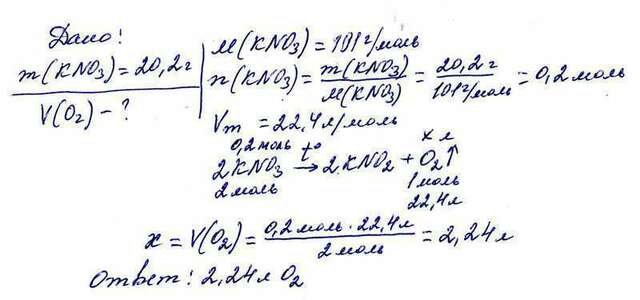 Дано:
m(KNO3) = 20,2г
V(O2) - ?
M(KNO3) = 101г/моль
n(KNO3) = m(KNO3)/M(KNO3) = 20,2г/101г/моль = 0,2моль
Vm = 22,4л/моль
0,2моль t° x л
2KNO3 → 2KNO2 + O2↑
2моль 1моль
22,4л
x = V(O2) = 0,2моль · 22,4л/2моль = 2,24л
Ответ: 2,24л O2